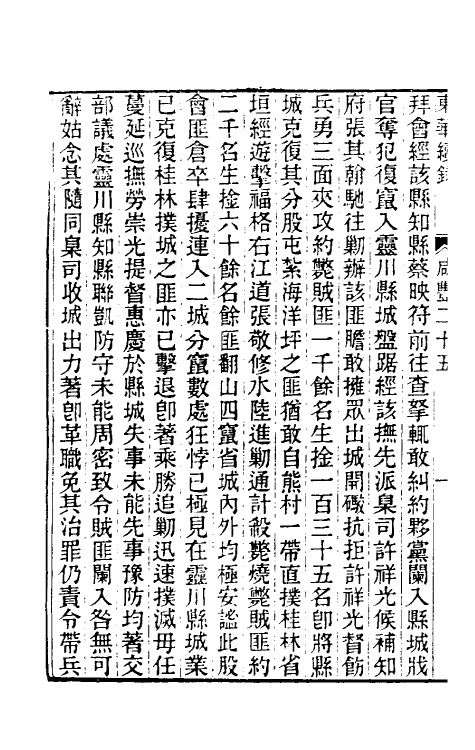 東華續錄　咸豐二十五　一
拜會經該縣知縣蔡映符前往查拏輒敢糾約夥黨闌入縣城戕
官奪犯復竄入靈川縣城盤踞經該撫先派臬司許祥光候補知
府張其翰馳往勦辦該匪膽敢擁眾出城開礮抗拒許祥光督飭
兵勇三面夾攻約斃賊匪一千餘名生捦一百三十五名卽將縣
城克復其分股屯紮海洋坪之匪猶敢自熊村一帶直撲桂林省
垣經遊擊福格右江道張敬修水陸進勦通計殺斃燒斃賊匪約
二千名生捦六十餘名餘匪翻山四竄省城內外均極安謐此股
會匪倉卒肆擾連入二城分竄數處狂悖已極見在靈川縣城業
已克復桂林撲城之匪亦已擊退卽著乘勝追勦迅速撲滅毋任
蔓延巡撫勞崇光提督惠慶於縣城失事未能先事豫防均著交
部議處靈川縣知縣聯凱防守未能周密致令賊匪闌入咎無可
辭姑念其隨同臬司收城出力著卽革職免其治罪仍責令帶兵